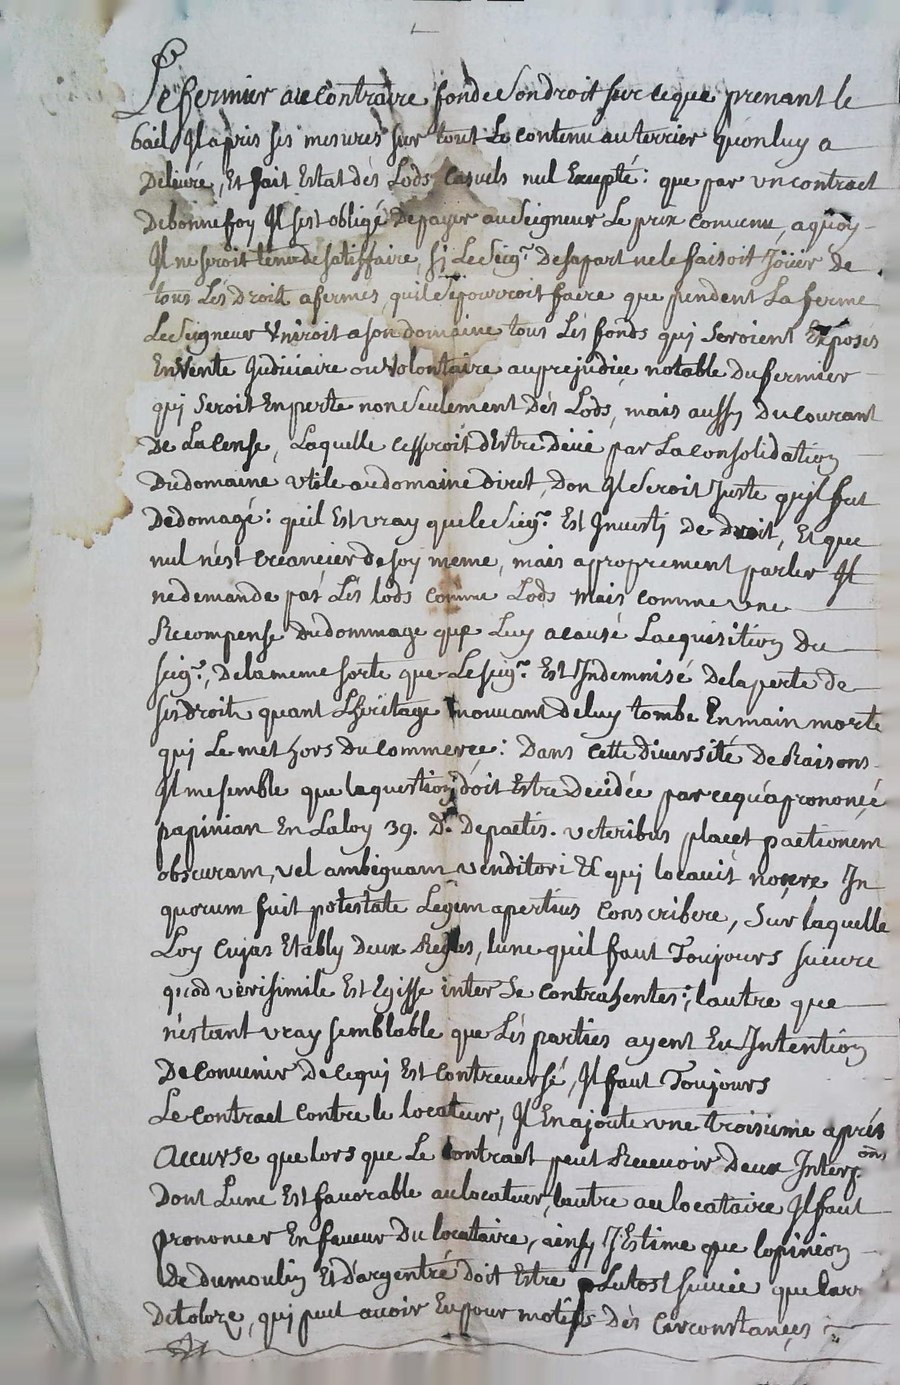 Le fermier au contraire fonde son droit sur ce que prenant le
bail Il a pris ses mesures sur tout Le contenu au terrier qu'on luy a
Delivré, Et fait Estat dès Lods Casuels nul Excepté : que par vn contract
De bonne foy Il s'est obligé De payer au Seigneur Le prix convenu, a quoy
Il ne seroit tenu de satisffaire, sj Le Seigr. De sa part ne le faisoit Joüir de
tous Lès Droit afermès, qu'il se pourroit faere que pendent La ferme
Le Seigneur Vniroit a son domaine tous Lès fonds quj Seroient Exposés
En Vente Judiciaire ou Volontaire au préjudice notable Du fermier
quj Seroit En perte non Seulement Dès Lods, mais aussy Du courant
De La cense, Laquelle cesseroit d'Estre Deüe par La consolidation
Du domaine vtile au domaine Direct, Don Il Seroit Juste qu'jl fut
Dedomagé : qu'il Est vray que le Seigr. Est Jnvestj De Droit, Et que
nul n'est creancier de soy meme, mais a proprement parler Il
ne demande pas Lès lods comme Lods mais comme vne
Recompense Du dommage que Luy a causé L'acquisition Du
Seigr., De la meme sorte que Le Seigr. Est Indemnisé De la perte de
ses droits quant L'heritage mouvant de luy tombe En main morte
qui Le met hors Du commerce : Dans cette diversité De Raisons
Il me semble que la question doit Estre Decidée par ce qu'a prononçé
papinian En La loy 39. D. De pactis. veteribus placet pactionem
obscuram, vel ambiguam venditori & quj locavit noçere In
quorum fuit potestate Legem apertius Conscribere, Sur laquelle
Loy Cujas Etably Deux Regles, l'une qu'il faut Toujours suivre
quod verisimile Est Egisse inter Se contrahentes ; l'autre que
n'estant vray semblable que Lès parties ayent Eu Intention
De Convenir De ce quj Est Controversé, Il faut Toujours
Le contract contre le locateur, Il En ajoute vne troisieme aprés
Accurse que lors que Le Contract peut Recevoir Deux Interp.ons
Dont L'une Est favorable au locateur, l'autre au locataire Il faut
prononcer En faveur Du locataire, ainsy J'Estime que l'opinion
De dumoulin Et D'argentré doit Estre plutost suivie que l'arr
De tolose, qui peut avoir Eu pour motifs Dès Circonstances